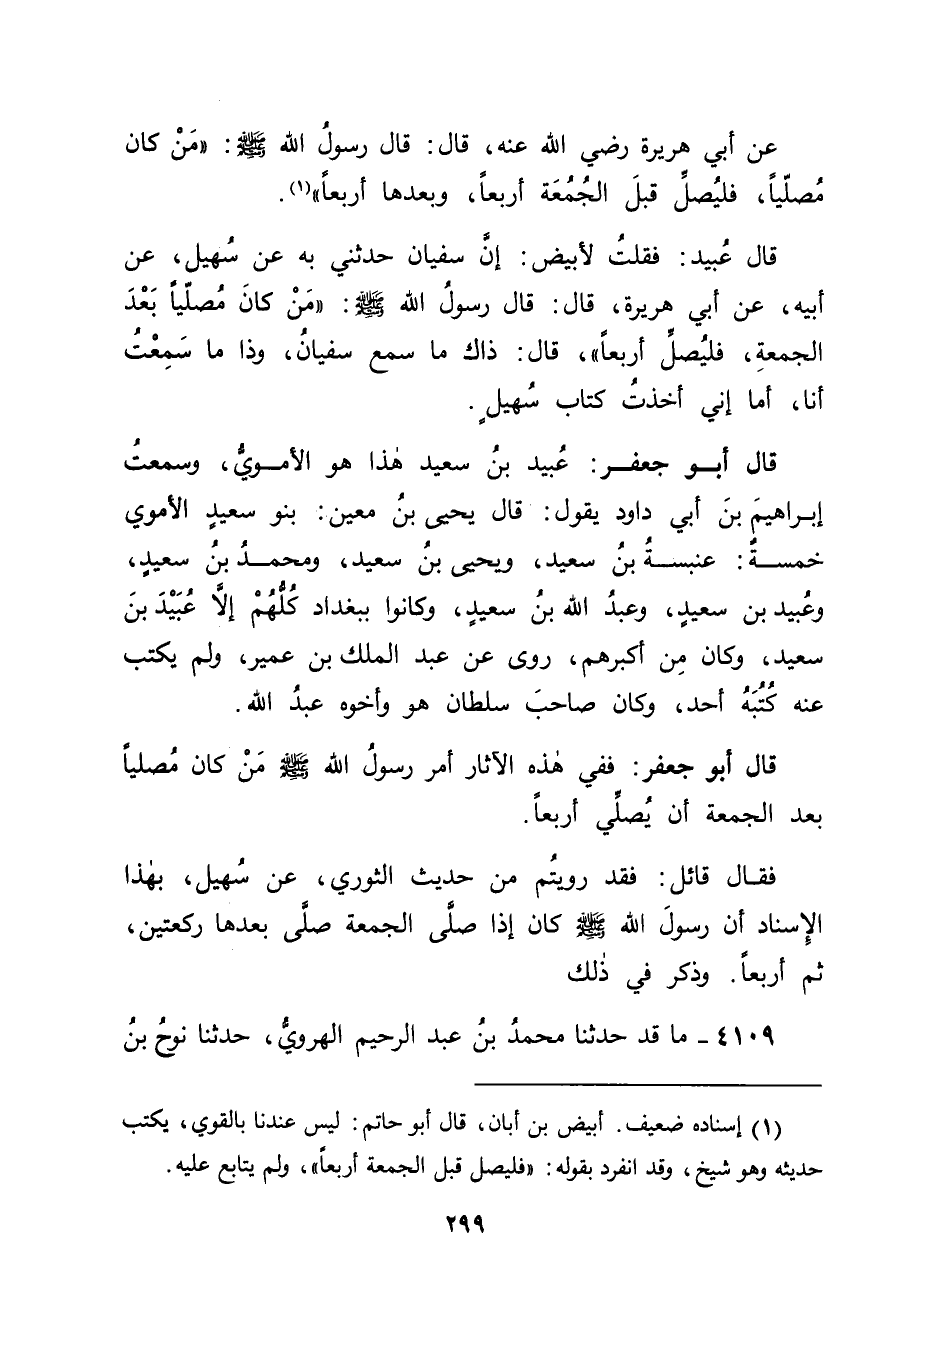 عن أبي هريرة رضي الله عنه، قال: قال رسولُ الله ﷺ: «مَنْ كان
مُصلّياً، فليُصلِّ قبلَ الجُمُعَة أربعاً، وبعدها أربعاً»(١).
قال عُبيد: فقلتُ لأبيض: إنَّ سفيان حدثني به عن سُهيل، عن
أبيه، عن أبي هريرة، قال: قال رسولُ الله ﷺ: «مَنْ كانَ مُصلّياً بَعْدَ
الجمعةِ، فليُصلِّ أربعاً»، قال: ذاك ما سمع سفيانُ، وذا ما سَمِعْتُ
أنا، أما إني أخذتُ كتاب سُهيلٍ.
قال أبو جعفر: عُبيد بنُ سعيد هٰذا هو الأمويُّ، وسمعتُ
إبراهيمَ بنَ أبي داود يقول: قال يحيى بنُ معين: بنو سعيدٍ الأموي
خمسةٌ: عنبسةُ بنُ سعيد، ويحيى بنُ سعيد، ومحمدُ بنُ سعيدٍ،
وعُبيد بن سعيدٍ، وعبدُ الله بنُ سعيدٍ، وكانوا ببغداد كُلُّهُمْ إلَّا عُبَيْدَ بنَ
سعيد، وكان مِن أكبرهم، روى عن عبد الملك بن عمير، ولم يكتب
عنه كُتُبَهُ أحد، وكان صاحبَ سلطان هو وأخوه عبدُ الله.
قال أبو جعفر: ففي هٰذه الآثار أمر رسولُ الله ﷺ مَنْ كان مُصلياً
بعد الجمعة أن يُصلِّي أربعاً.
فقال قائل: فقد رويتُم من حديث الثوري، عن سُهيل، بهٰذا
الإِسناد أن رسولَ الله ﷺ كان إذا صلَّى الجمعة صلَّى بعدها ركعتين،
ثم أربعاً. وذكر في ذٰلك
٤١٠٩ ـ ما قد حدثنا محمدُ بنُ عبد الرحيم الهرويُّ، حدثنا نوحُ بنُ
(١) إسناده ضعيف. أبيض بن أبان، قال أبو حاتم: ليس عندنا بالقوي، يكتب
حديثه وهو شيخ، وقد انفرد بقوله: «فليصل قبل الجمعة أربعاً»، ولم يتابع عليه.
٢٩٩